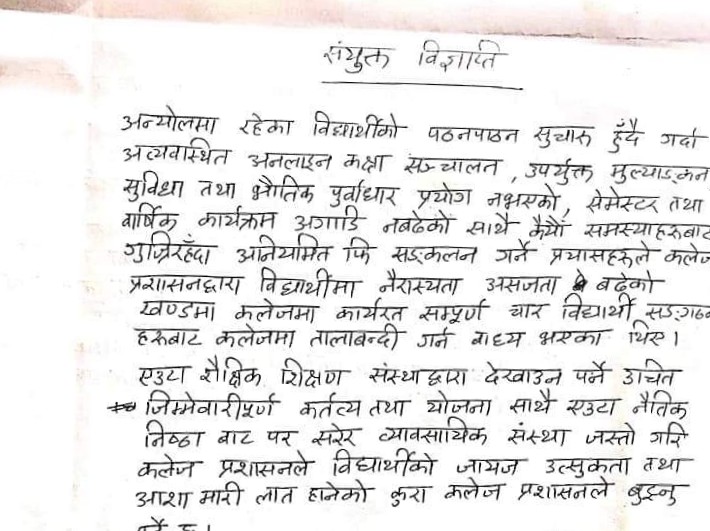 संयुक्त विज्ञाप्ति
अन्योलमा रहेका विद्यार्थीको पठनपाठन सुचारु हुँदै गर्दा
अव्यवस्थित अनलाइन कक्षा सञ्चालन, उपर्युक्त मुल्याङ्कन
सुविधा तथा भौतिक पुर्वाधार प्रयोग नभएको, सेमेस्टर तथा
वार्षिक कार्यक्रम अगाडि नबढेको साथै कैयौं समस्याहरुबाट
गुज्रिरहँदा अनियमित फि सङ्कलन गर्ने प्रयासहरुले कलेज
प्रशासनद्वारा विद्यार्थीमा नैरास्यता असजता बढेको
खण्डमा कलेजमा कार्यरत सम्पूर्ण चार विद्यार्थी सङ्गठन
हरुबाट कलेजमा तालाबन्दी गर्न बाध्य भएका थिए।
एउटा शैक्षिक शिक्षण संस्थाद्वारा देखाउन पर्ने उचित
जिम्मेवारीपूर्ण कर्तव्य तथा योजना साथै एउटा नैतिक
निष्ठा बाट पर सरेर व्यावसायिक संस्था जस्तो गरि
कलेज प्रशासनले विद्यार्थीको जायज उत्सुकता तथा
आशा मारी लात हानेको कुरा कलेज प्रशासनले बुझ्नु